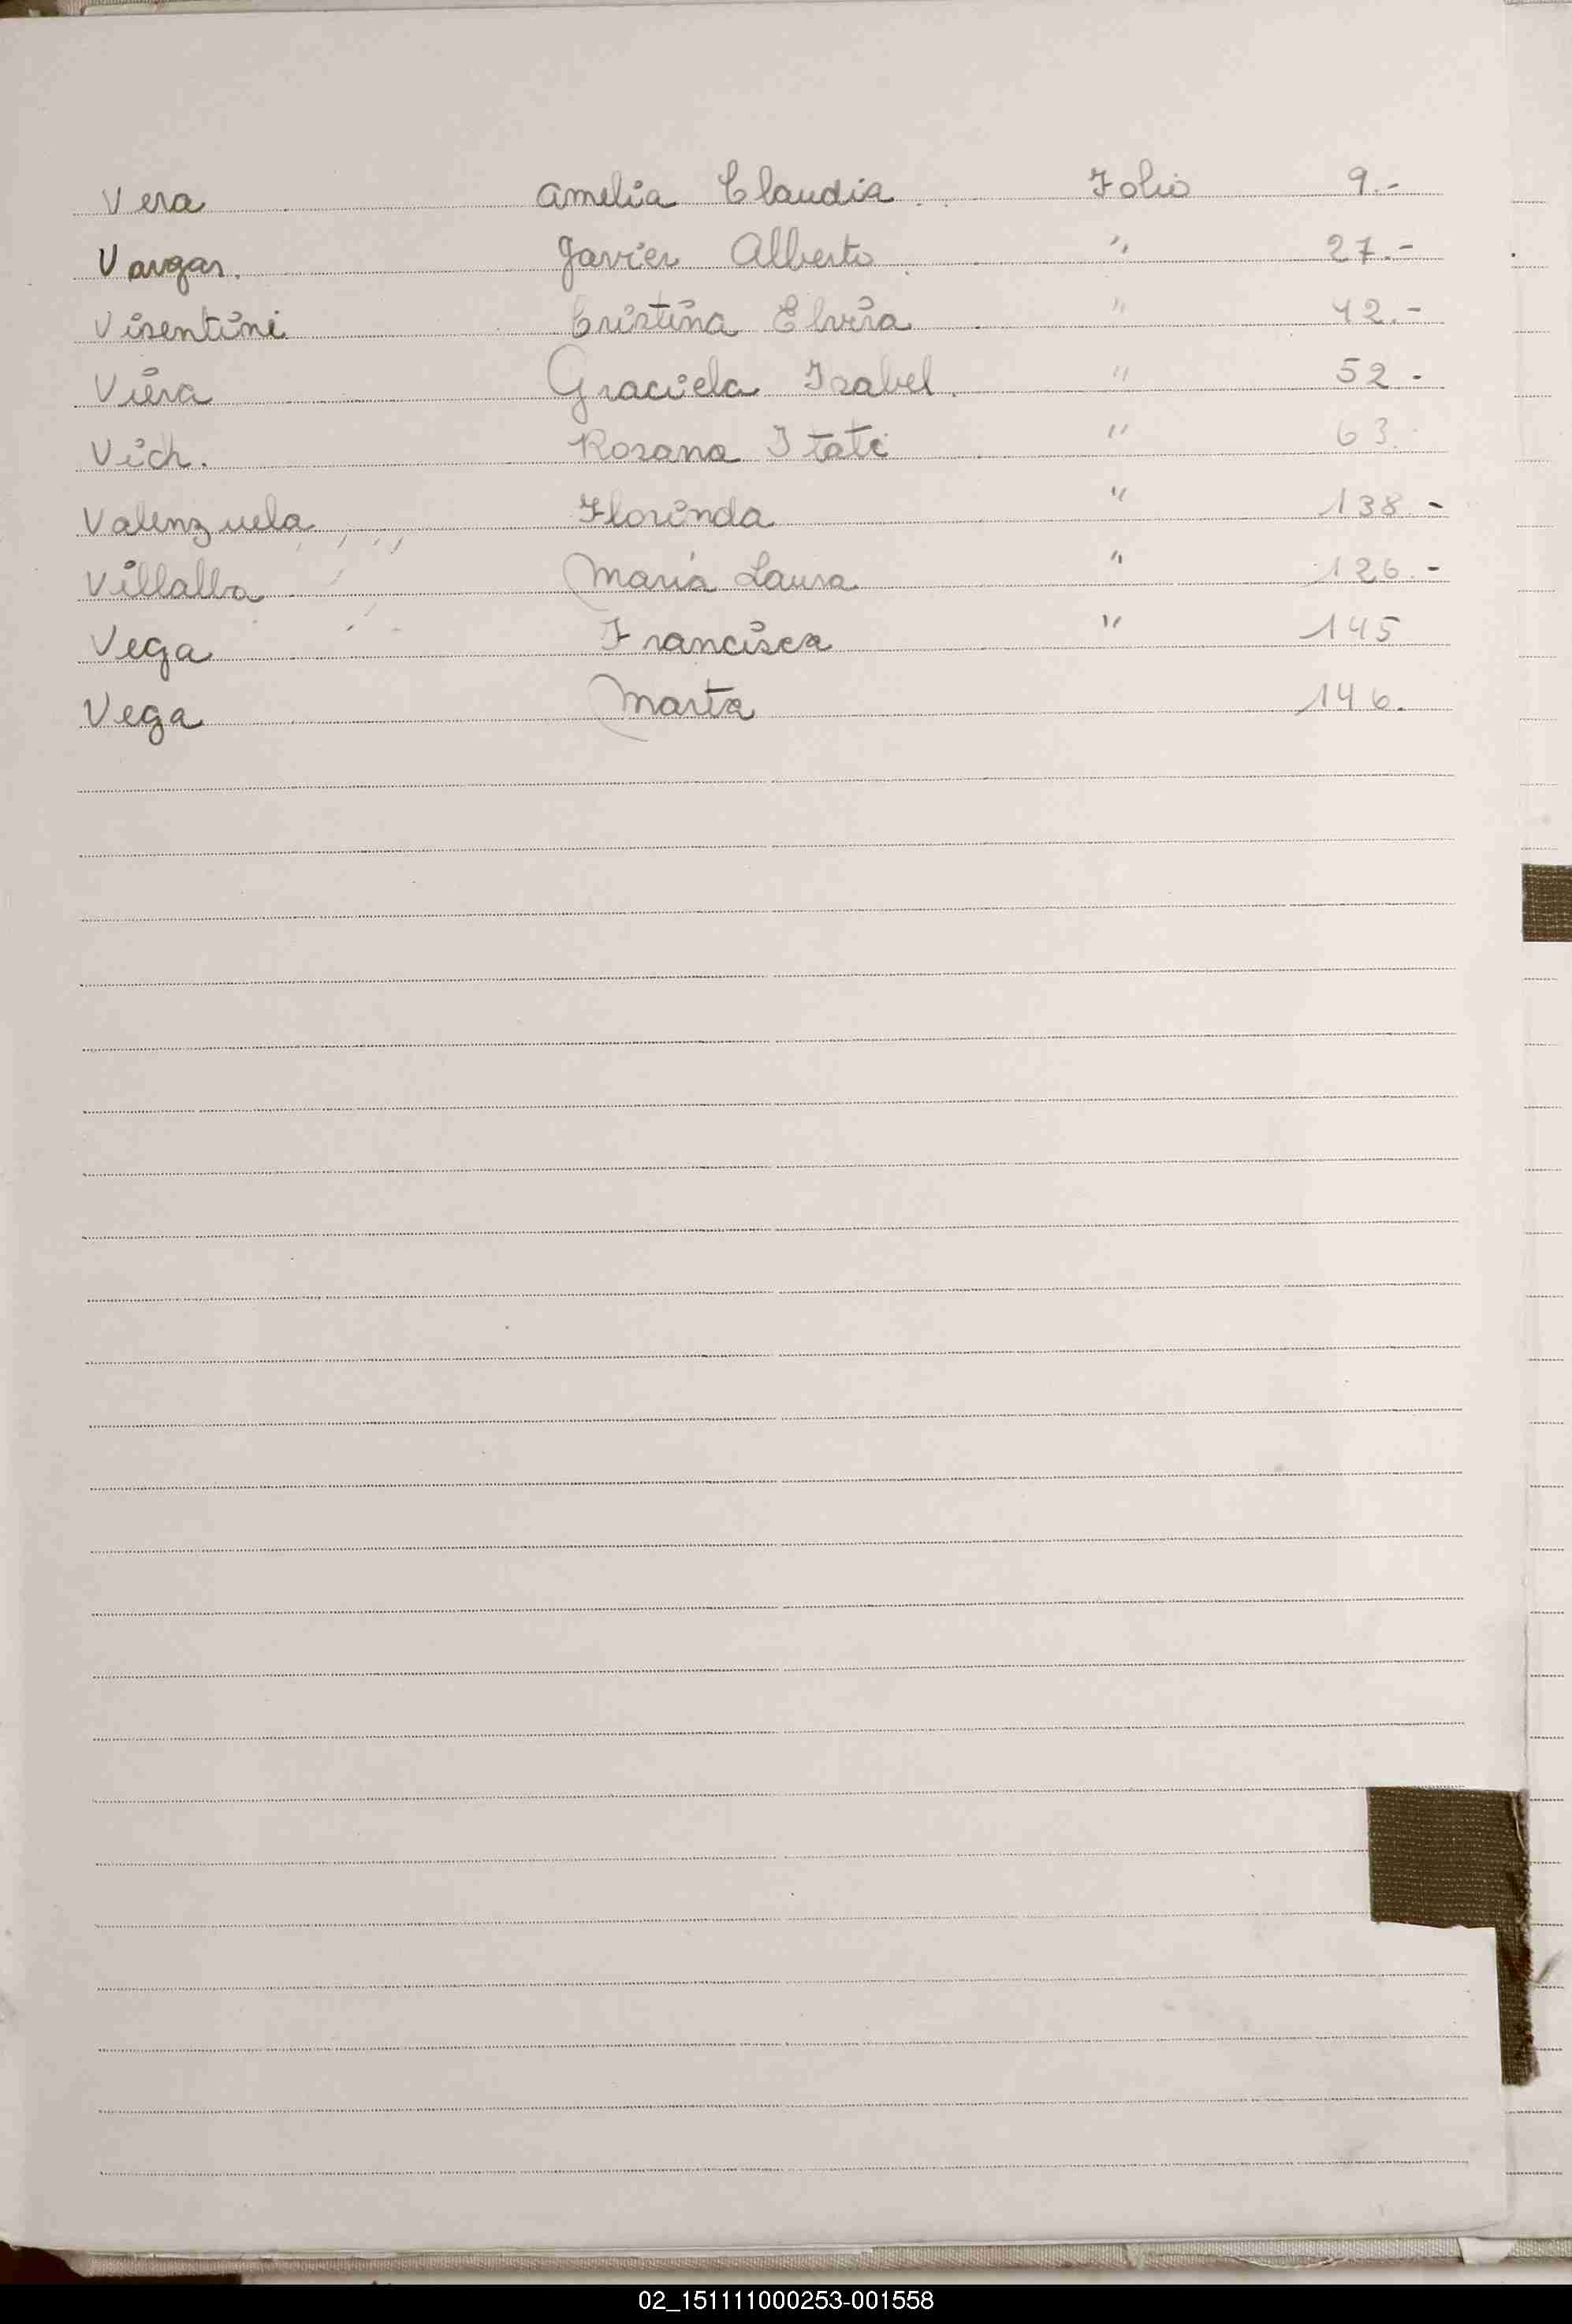 Vera Amelia Claudia Folio 9.-
Vargas. Javier Alberto " 27.-
Visentini Cristina Elvira " 42.-
Viera Graciela Isabel " 52.-
Vich. Rosana Itati " 63.
Valenzuela Florinda " 138.-
Villalba María Laura " 126.-
Vega Francisca " 145
Vega Marta 146.
02_151111000253-001558